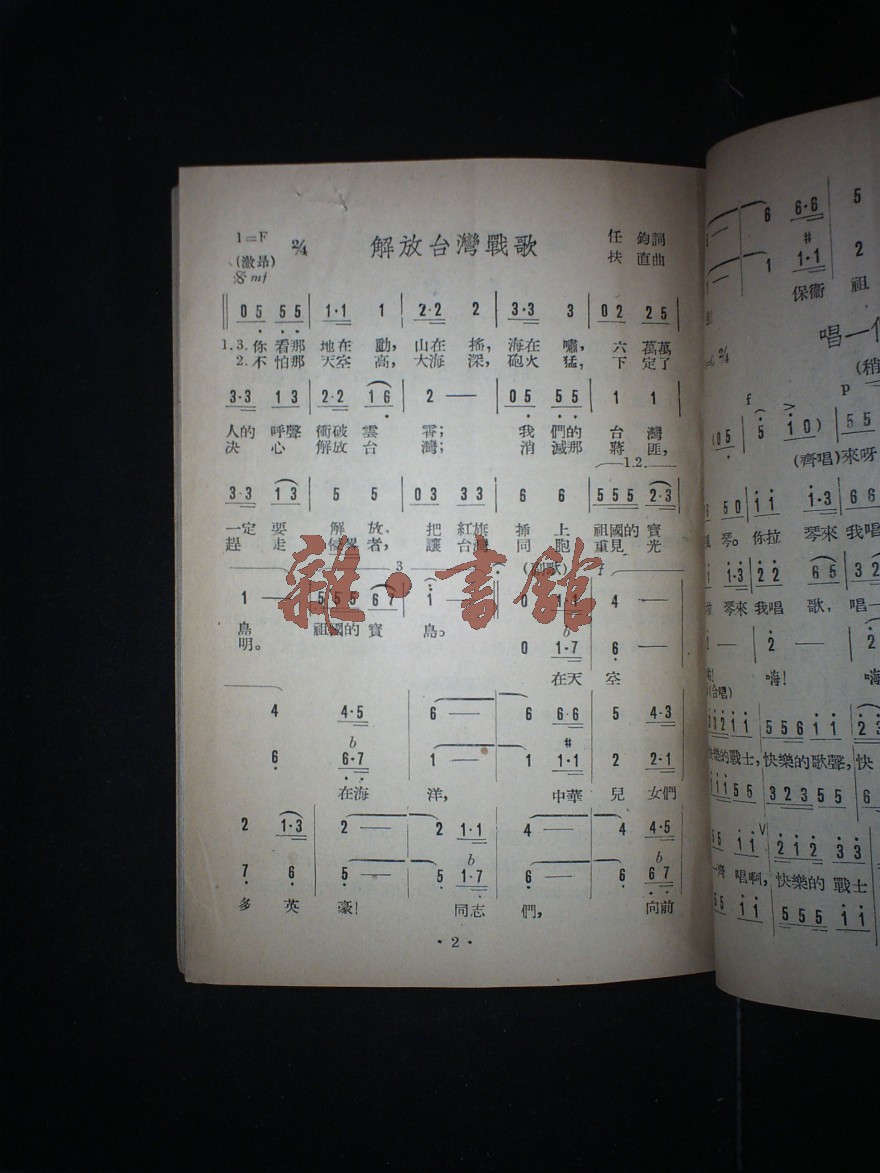 1=F 2/4 解放台灣戰歌 任鈞詞
(激昂) 扶直曲
mf
0 5 5 5 | 1·1 1 | 2·2 2 | 3·3 3 | 0 2 2 5 |
1.3.你看那 地在 動, 山在 搖, 海在 嘯, 六 萬萬
2.不怕那 天空 高, 大海 深, 砲火 猛, 下 定了
3·3 1 3 | 2·2 1 6 | 2 — | 0 5 5 5 | 1 1 |
人的 呼聲 衝破 雲 霄; 我 們的 台 灣
决 心 解放 台 灣; 消 滅那 蔣 匪,
1.2.
3·3 1 3 | 5 5 | 0 3 3 3 | 6 6 | 5 5 5 2·3 |
一定 要 解 放、 把 紅旗 插 上 祖國的 寶
趕 走 侵畧 者, 讓 台灣 同 胞 重見 光
3
1 — | 5 5 5 6 7 | 1 — | 0 1·1 | 4 —
島 祖國的 寶 島。
明。
0 1·7 | 6 —
在天 空
4 4·5 | 6 — | 6 6·6 | 5 4·3
6 6·7 | 1 — | 1 1·1 | 2 2·1
在海 洋, 中華 兒 女們
2 1·3 | 2 — | 2 1·1 | 4 — | 4 4·5
7 6 | 5 — | 5 1·7 | 6 — | 6 6 7
多 英 豪! 同志 們, 向前
· 2 ·
雜·書館
6 6·6 5
1 1·1 2
保衞 祖
唱一
2/4
f p
(0 5 5 1 0) 5 5
(齊唱)來呀
5 0 1 1 1·3 6 6
琴。你拉 琴來 我唱
1·3 2 2 6 5 3 2
琴來 我唱 歌, 唱一
— 2 — 2
嗨!
(合唱)
2 1 1 5 5 6 1 1 2 3
樂的戰士,快樂的歌聲,快
1 1 5 5 3 2 3 5 5 5
5 5 1 1 V 2 1 2 3 3
齊 唱啊,快樂的 戰士
5 5 1 1 5 5 5 1 1